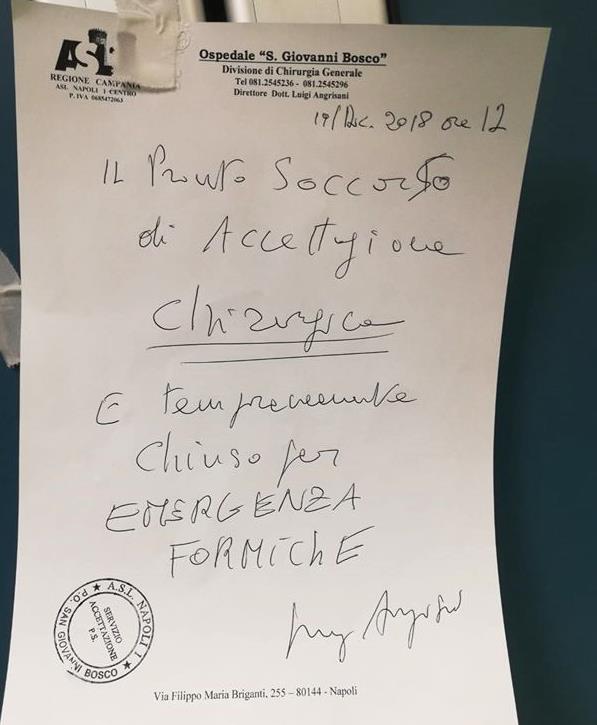 ASL
REGIONE CAMPANIA
ASL NAPOLI 1 CENTRO
P. IVA 0685472063
Ospedale “S. Giovanni Bosco”
Divisione di Chirurgia Generale
Tel 081.2545236 - 081.2545296
Direttore Dott. Luigi Angrisani
19/Dic. 2018 ore 12
IL Pronto Soccorso
di Accettazione
Chirurgica
E temporaneamente
Chiuso per
EMERGENZA
FORMICHE
A.S.L. NAPOLI 1
P.O. SAN GIOVANNI BOSCO
SERVIZIO
ACCETTAZIONE
P.S.
Via Filippo Maria Briganti, 255 – 80144 - Napoli